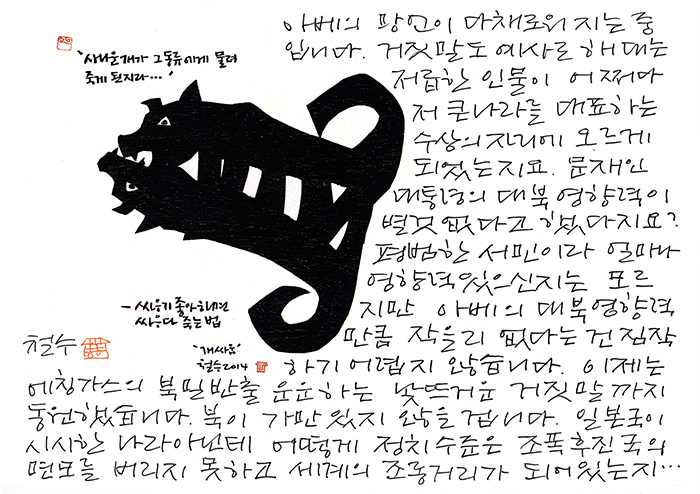 '사나운개가 그 동류에게 물려
죽게 된지라…'
— 싸우기 좋아하면
싸우다 죽는 법
'개싸움'
철수2014
철수
아베의 망언이 다채로워지는 중
입니다. 거짓말도 예사로 해대는
저렴한 인물이 어쩌다
저 큰나라를 대표하는
수상의 자리에 오르게
되었는지요. 문재인
대통령의 대북영향력이
별것 없다고 했다지요?
평범한 서민이라 얼마나
영향력있으신지는 모르
지만 아베의 대북영향력
만큼 작을리 없다는 건 짐작
하기 어렵지 않습니다. 이제는
에칭가스의 북밀반출 운운하는 낯뜨거운 거짓말까지
동원했습니다. 북이 가만 있지 않을 겁니다. 일본국이
시시한 나라아닌데 어떻게 정치수준은 조폭후진국의
면모를 버리지 못하고 세계의 조롱거리가 되어있는지…